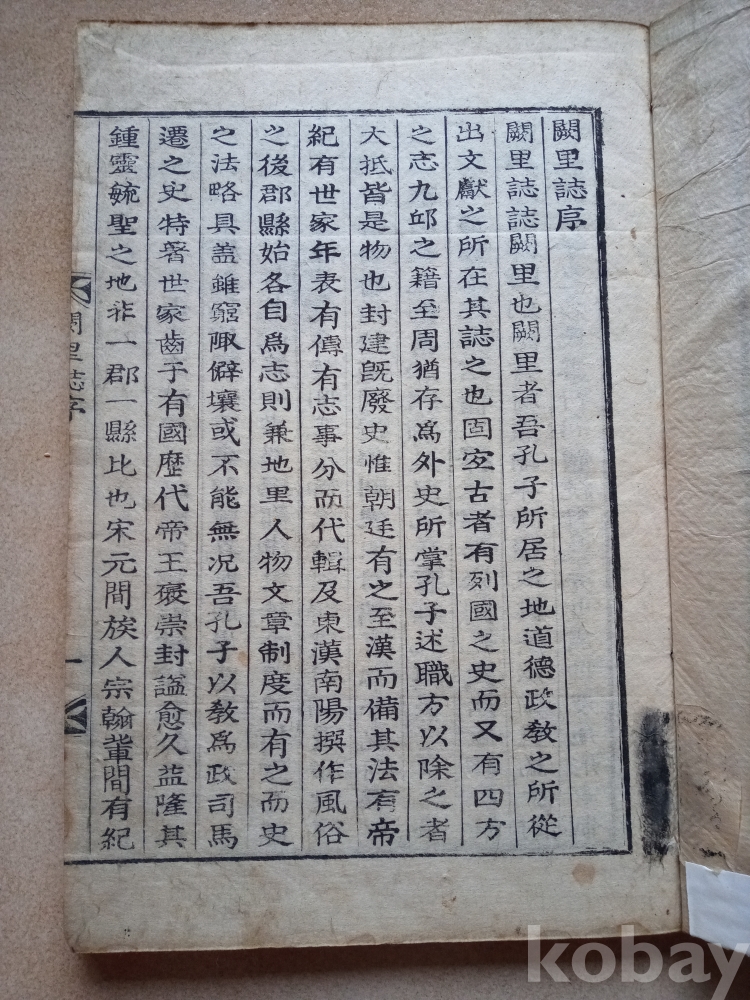 闕里誌序
闕里誌誌闕里也闕里者吾孔子所居之地道德政教之所從
出文獻之所在其誌之也固宜古者有列國之史而又有四方
之志九邱之籍至周猶存爲外史所掌孔子述職方以除之者
大抵皆是物也封建旣廢史惟朝廷有之至漢而備其法有帝
紀有世家年表有傳有志事分而代輯及東漢南陽撰作風俗
之後郡縣始各自爲志則兼地里人物文章制度而有之而史
之法略具盖雖窮陬僻壤或不能無况吾孔子以敎爲政司馬
遷之史特著世家齒于有國歷代帝王褒崇封謚愈久益隆其
鍾靈毓聖之地非一郡一縣比也宋元間族人宗翰軰間有紀
闕里誌序
一
kobay